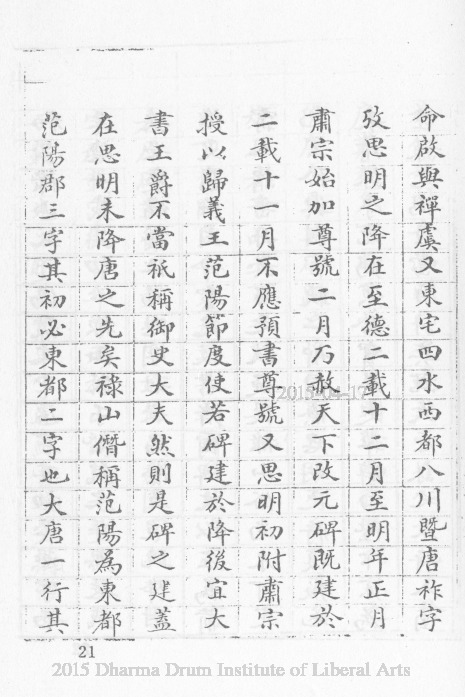 命啟與禪虞又東宅四水西都八川暨唐祚字
攷思明之降在至德二載十二月至明年正月
肅宗始加尊號二月乃赦天下改元碑既建於
二載十一月不應預書尊號又思明初附肅宗
授以歸義王范陽節度使若碑建於降後宜大
書王爵不當祇稱御史大夫然則是碑之建蓋
在思明未降唐之先矣祿山僭稱范陽為東都
范陽郡三字其初必東都二字也大唐一行其
2015-04-17
21
2015 Dharma Drum Institute of Liberal Arts